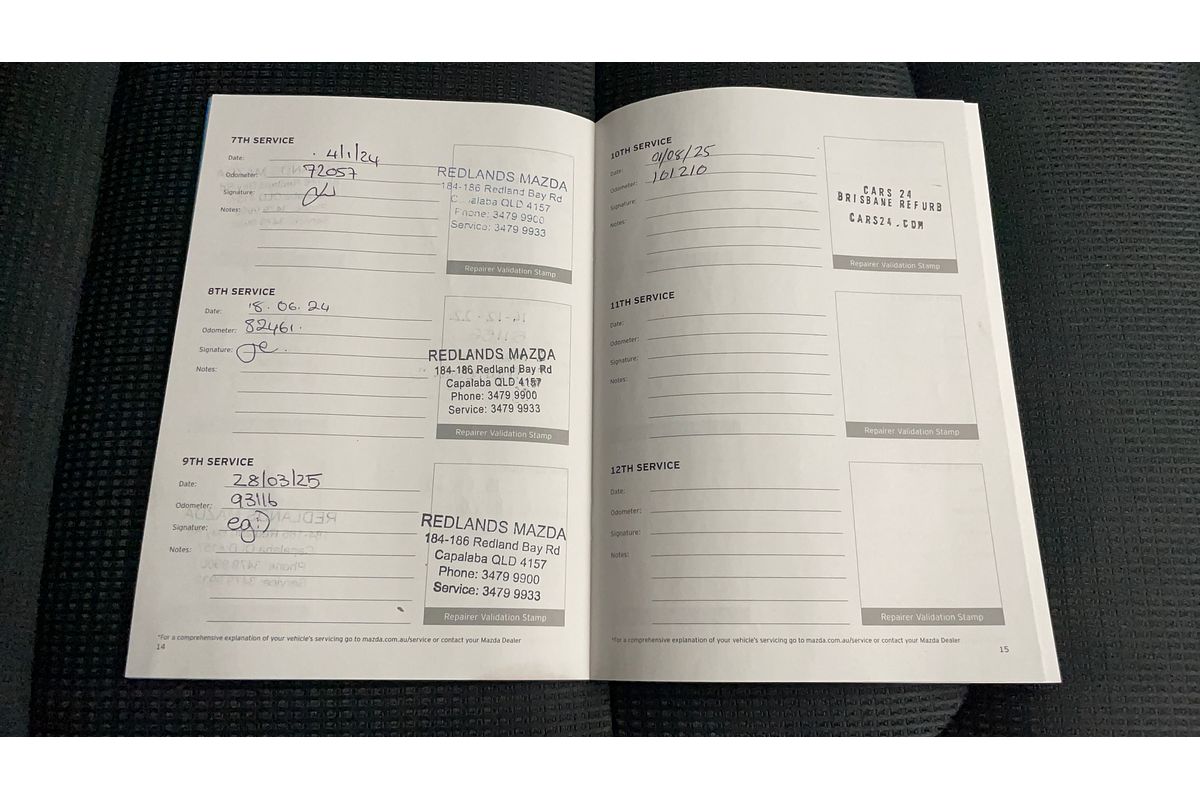 7TH SERVICE
Date: 4/1/24
Odometer: 72057
Signature:
Notes:
REDLANDS MAZDA
184-186 Redland Bay Rd
Capalaba QLD 4157
Phone: 3479 9900
Service: 3479 9933
Repairer Validation Stamp
8TH SERVICE
Date: 18.06.24
Odometer: 82461.
Signature:
Notes:
REDLANDS MAZDA
184-186 Redland Bay Rd
Capalaba QLD 4157
Phone: 3479 9900
Service: 3479 9933
Repairer Validation Stamp
9TH SERVICE
Date: 28/03/25
Odometer: 93116
Signature:
Notes:
REDLANDS MAZDA
184-186 Redland Bay Rd
Capalaba QLD 4157
Phone: 3479 9900
Service: 3479 9933
Repairer Validation Stamp
*For a comprehensive explanation of your vehicle's servicing go to mazda.com.au/service or contact your Mazda Dealer
14
10TH SERVICE
Date: 01/08/25
Odometer: 101210
Signature:
Notes:
CARS 24
BRISBANE REFURB
CARS24.COM
Repairer Validation Stamp
11TH SERVICE
Date:
Odometer:
Signature:
Notes:
Repairer Validation Stamp
12TH SERVICE
Date:
Odometer:
Signature:
Notes:
Repairer Validation Stamp
*For a comprehensive explanation of your vehicle's servicing go to mazda.com.au/service or contact your Mazda Dealer
15